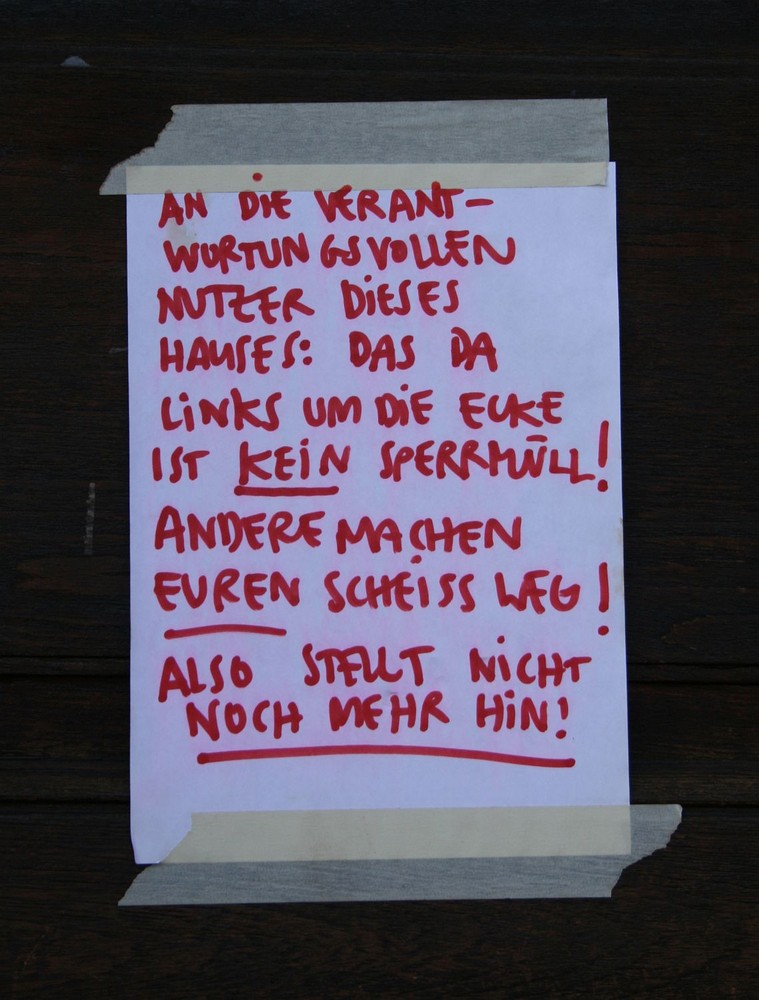 AN DIE VERANT-
WORTUNGSVOLLEN
NUTZER DIESES
HAUSES: DAS DA
LINKS UM DIE ECKE
IST KEIN SPERRMÜLL!
ANDERE MACHEN
EUREN SCHEISS WEG!
ALSO STELLT NICHT
NOCH MEHR HIN!